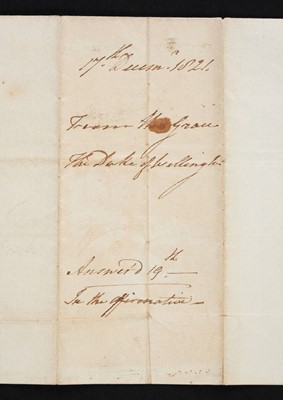 17th Decemr. 1821
From His Grace
The Duke of Wellingtn
Answer'd 19th
In the affirmative